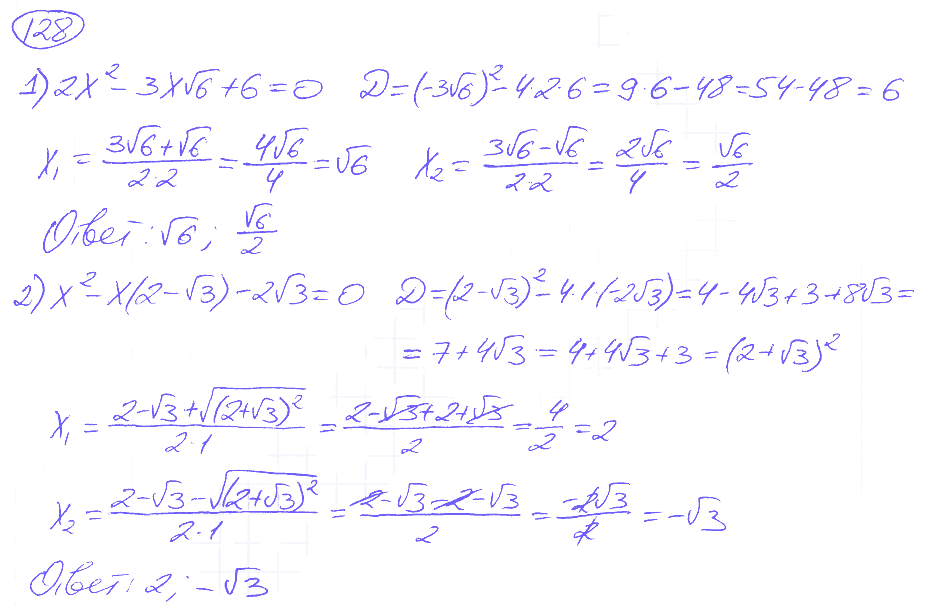 128
1) 2x² - 3x√6 + 6 = 0 D = (-3√6)² - 4·2·6 = 9·6 - 48 = 54 - 48 = 6
x₁ = (3√6 + √6)/(2·2) = 4√6/4 = √6 x₂ = (3√6 - √6)/(2·2) = 2√6/4 = √6/2
Ответ: √6; √6/2
2) x² - x(2 - √3) - 2√3 = 0 D = (2 - √3)² - 4·1·(-2√3) = 4 - 4√3 + 3 + 8√3 =
= 7 + 4√3 = 4 + 4√3 + 3 = (2 + √3)²
x₁ = (2 - √3 + √(2 + √3)²)/(2·1) = (2 - √3 + 2 + √3)/2 = 4/2 = 2
x₂ = (2 - √3 - √(2 + √3)²)/(2·1) = (2 - √3 - 2 - √3)/2 = -2√3/2 = -√3
Ответ: 2; -√3